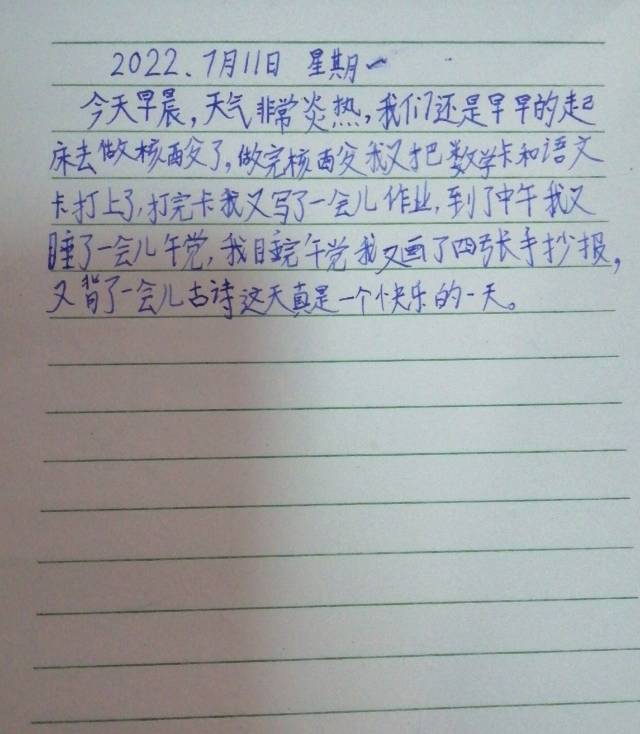 2022、7月11日 星期一
今天早晨，天气非常炎热，我们还是早早的起
床去做核酸了，做完核酸我又把数学卡和语文
卡打上了，打完卡我又写了一会儿作业，到了中午我又
睡了一会儿午觉，我睡完午觉我又画了四张手抄报，
又背了一会儿古诗这天真是一个快乐的一天。